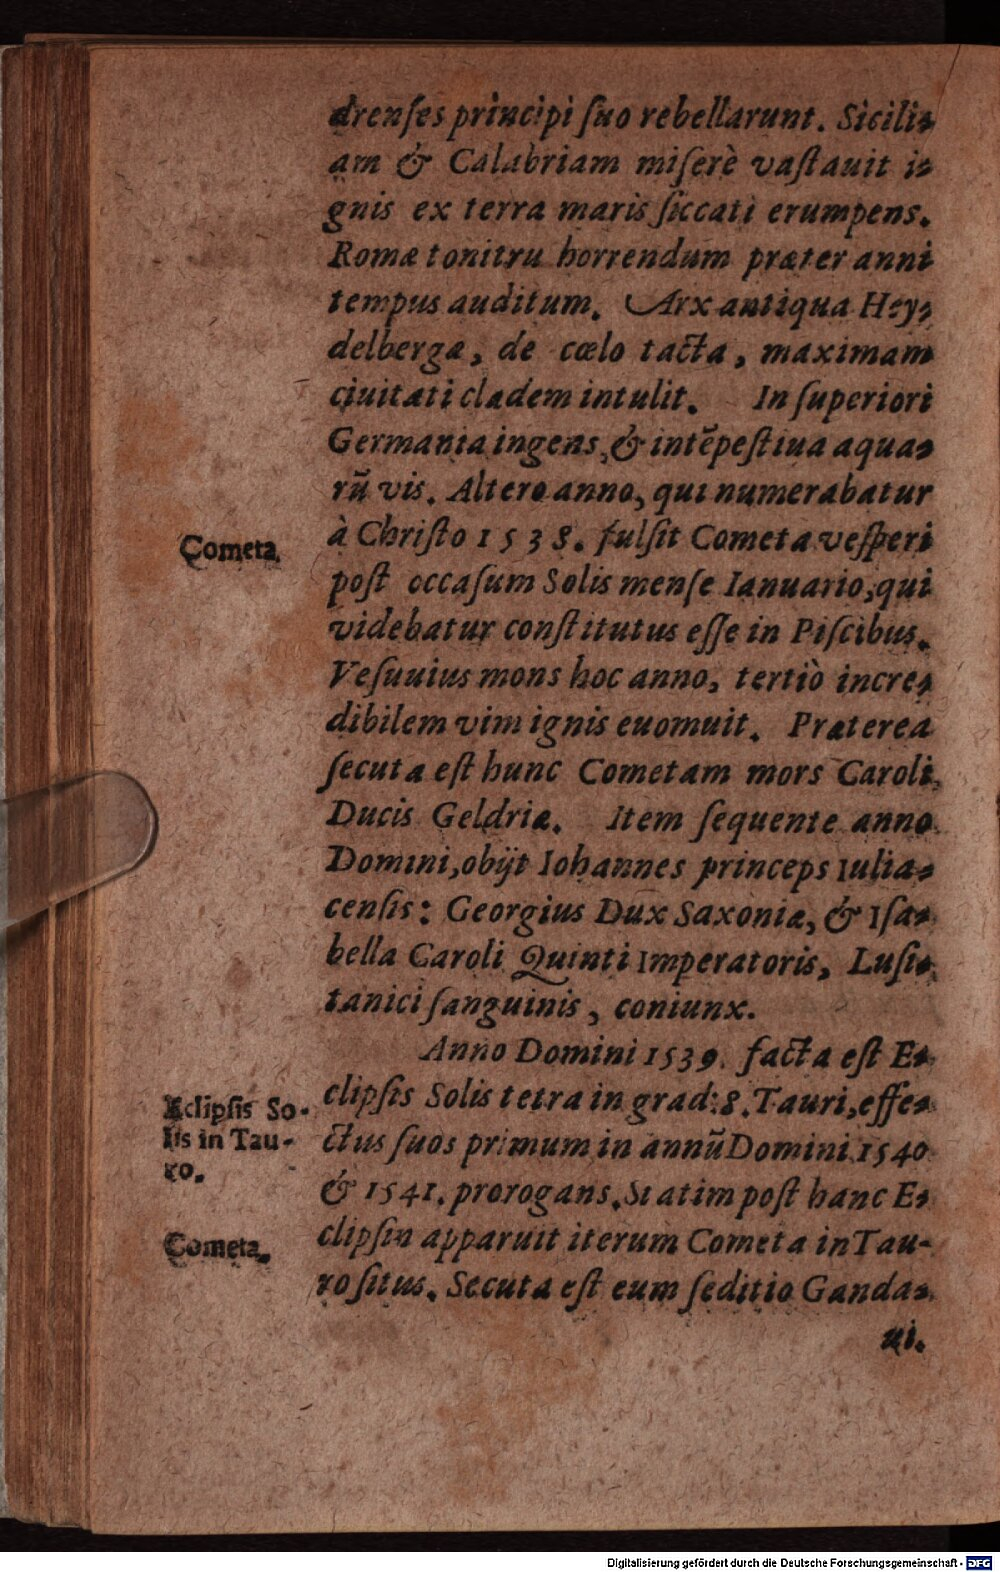 drenſes principi ſuo rebellarunt. Sicili-
am & Calabriam miſerè vaſtauit i-
gnis ex terra maris ſiccati erumpens.
Romæ tonitru horrendum præter anni
tempus auditum. Arx antiqua Hey-
delbergæ, de cœlo tacta, maximam
ciuitati cladem intulit. In ſuperiori
Germania ingens, & intẽpeſtiua aqua-
rũ vis. Altero anno, qui numerabatur
à Chriſto 1538. fulſit Cometa veſperi
Cometa.
poſt occaſum Solis menſe Ianuario, qui
videbatur conſtitutus eſſe in Piſcibus.
Veſuuius mons hoc anno, tertiò incre-
dibilem vim ignis euomuit. Præterea
ſecuta eſt hunc Cometam mors Caroli,
Ducis Geldriæ. Item ſequente anno
Domini, obijt Iohannes princeps Iulia-
cenſis: Georgius Dux Saxoniæ, & Iſa-
bella Caroli Quinti Imperatoris, Luſi-
tanici ſanguinis, coniunx.
Anno Domini 1539. facta eſt E-
clipſis Solis tetra in grad: 8. Tauri, effe-
Eclipſis So-
lis in Tau-
ro.
ctus ſuos primum in annũ Domini 1540
& 1541. prorogans. Statim poſt hanc E-
clipſin apparuit iterum Cometa in Tau-
Cometa.
ro ſitus. Secuta eſt eum ſeditio Ganda-
ui.
Digitalisierung gefördert durch die Deutsche Forschungsgemeinschaft - DFG